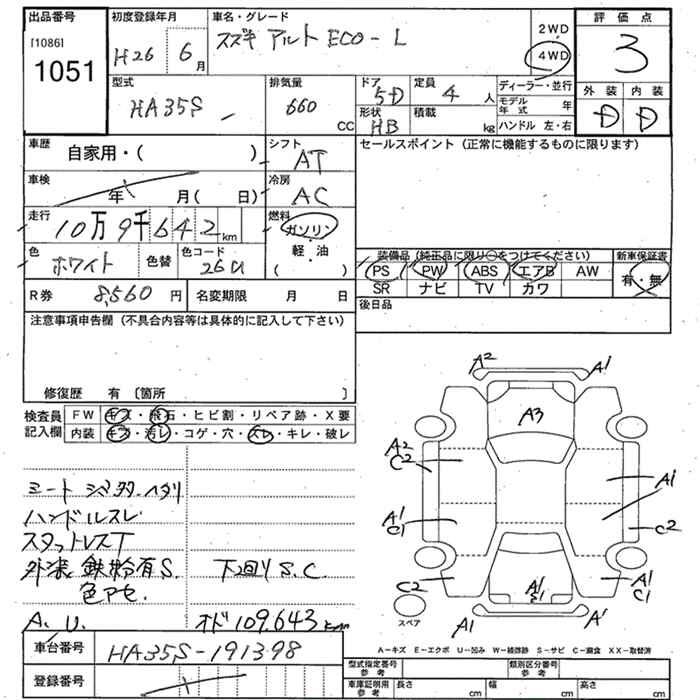 出品番号
[1086]
1051
初度登録年月
H26 年 6月
車名・グレード
スズキ アルト ECO-L
2WD
4WD
評価点
3
外装 内装
D D
型式
HA35S
排気量
660 CC
ドア 5D
形状 HB
定員 4 人
積載 kg
ディーラー・並行
モデル年式 年
ハンドル 左・右
車歴
自家用・( )
シフト AT
セールスポイント (正常に機能するものに限ります)
車検
年 月( 日)
冷房 AC
走行
10万9千642km
燃料
ガソリン
軽・油
( )
色
ホワイト
色替
色コード
26U
装備品 (純正品に限り○をつけてください)
新車保証書
PS PW ABS エアB AW
有・無
SR ナビ TV カワ
R券 8,560円
名変期限 月 日
後日品
注意事項申告欄 (不具合内容等は具体的に記入して下さい)
修復歴 有 〔箇所 〕
検査員記入欄
FW キズ・飛石・ヒビ割・リペア跡・X要
内装 キズ・汚レ・コゲ・穴・スレ・キレ・破レ
シート シミ多.ヘタリ
ハンドルスレ
スタットレスT
外装 鉄粉有S. 下回りS.C.
色アセ.
A.U. オド109.643km
A2 A1
A3
A2
C2
A1
A1
C1
C2
C2
A1
C1
A1
C1
A1 A1
スペア
A-キズ E-エクボ U-凹み W-補修跡 S-サビ C-腐食 XX-取替済
車台番号
HA35S-191398
登録番号
型式指定番号 参考
類別区分番号 参考
車庫証明用 参考
長さ cm 幅 cm 高さ cm